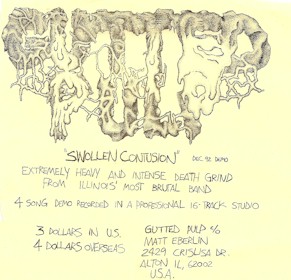 "SWOLLEN CONTUSION" DEC 92 DEMO
EXTREMELY HEAVY AND INTENSE DEATH GRIND
FROM ILLINOIS' MOST BRUTAL BAND
4 SONG DEMO RECORDED IN A PROFESSIONAL 16-TRACK STUDIO
3 DOLLARS IN U.S.
4 DOLLARS OVERSEAS
GUTTED PULP c/o
MATT EBERLIN
2429 CRISLISA DR.
ALTON IL, 62002
U.S.A.